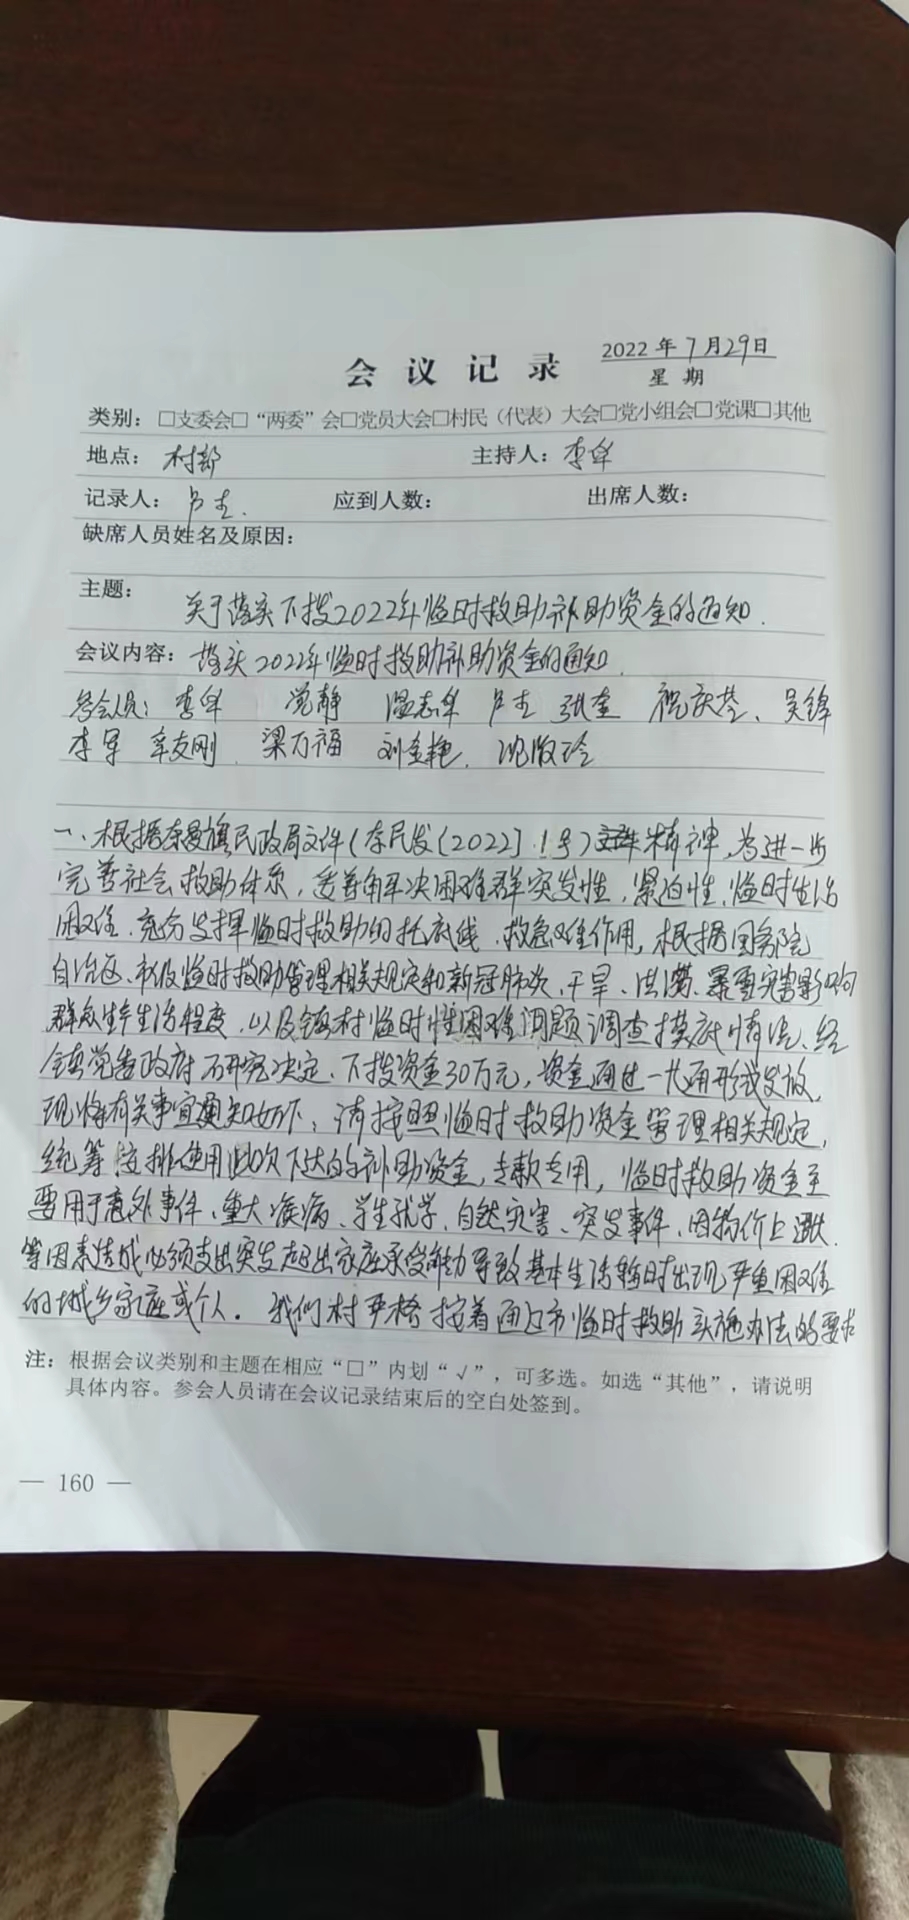 会议记录 2022年7月29日
星期
类别：□支委会□“两委”会□党员大会□村民（代表）大会□党小组会□党课□其他
地点：村部 主持人：李华
记录人：卢圭. 应到人数： 出席人数：
缺席人员姓名及原因：
主题：
关于落实下拨2022年临时救助补助资金的通知.
会议内容：落实2022年临时救助补助资金的通知.
参会人员：李华 党静 温志华 卢圭 张奎 祝庆芬、吴锋
李军 辛友刚 梁万福 刘金艳. 沈版玲
一、根据奈曼旗民政局文件(奈民发[2022]1号)精神，为进一步
完善社会救助体系，妥善解决困难群突发性，紧迫性，临时生活
困难、充分发挥临时救助的托底线、救急难作用，根据国务院
自治区、市级临时救助管理相关规定和新冠肺炎、干旱、洪涝、暴雪灾害影响
群众生产生活程度，以及镇村临时性困难问题调查摸底情况、经
镇党委政府研究决定、下拨资金30万元，资金通过一卡通形式发放，
现将有关事宜通知如下：请按照临时救助资金管理相关规定，
统筹安排使用此次下达的补助资金，专款专用，临时救助资金主
要用于意外事件、重大疾病、学生就学、自然灾害、突发事件、因物价上涨
等因素造成必须支出突发超出家庭承受能力导致基本生活暂时出现严重困难
的城乡家庭或个人。我们村严格按着通辽市临时救助实施办法的要求
注：根据会议类别和主题在相应“□”内划“√”，可多选。如选“其他”，请说明
具体内容。参会人员请在会议记录结束后的空白处签到。
— 160 —